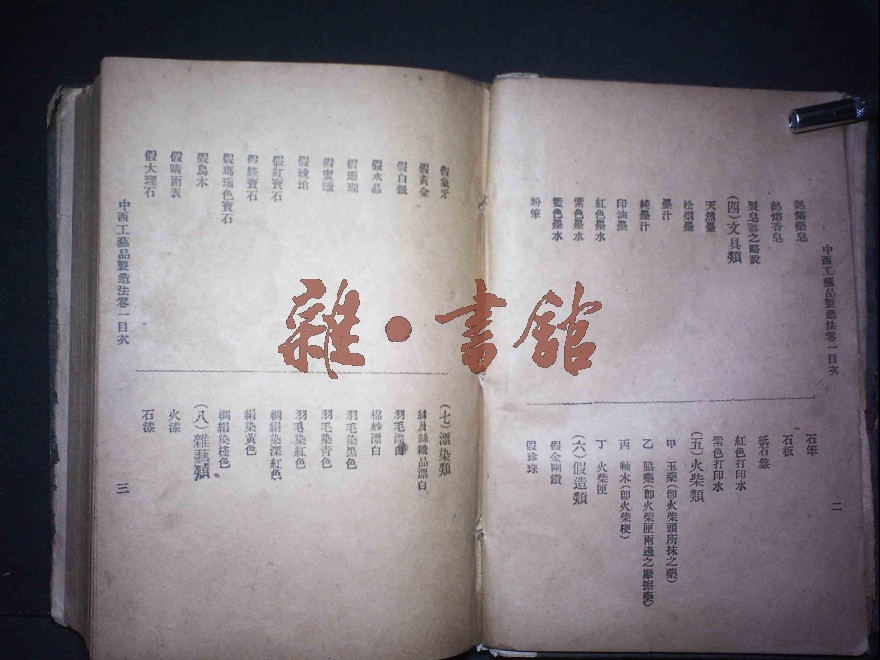 中西工藝品製造法卷一目次
二
熱熔藥皂
熱熔香皂
製皂器之略說
(四)文具類
天然墨
松烟墨
墨汁
純墨汁
印油墨
紅色墨水
紫色墨水
藍色墨水
粉筆
石筆
石板
紙石盤
紅色打印水
紫色打印水
(五)火柴類
甲 玉藥(卽火柴頭所抹之藥)
乙 脇藥(卽火柴匣兩邊之摩擦藥)
丙 軸木(卽火柴梗)
丁 火柴匣
(六)假造類
假金剛鑽
假珍珠
假象牙
假黃金
假白銀
假水晶
假珊瑚
假蜜蠟
假琥珀
假紅寶石
假綠寶石
假瑪瑙色寶石
假烏木
假晴雨表
假大理石
(七)漂染類
絲及絲織品漂白
羽毛漂白
棉紗漂白
羽毛染黑色
羽毛染靑色
羽毛染紅色
綢絹染深紅色
絹染黃色
綢絹染桃色
(八)雜藝類
火漆
石漆
中西工藝品製造法卷一目次
三
雜·書館